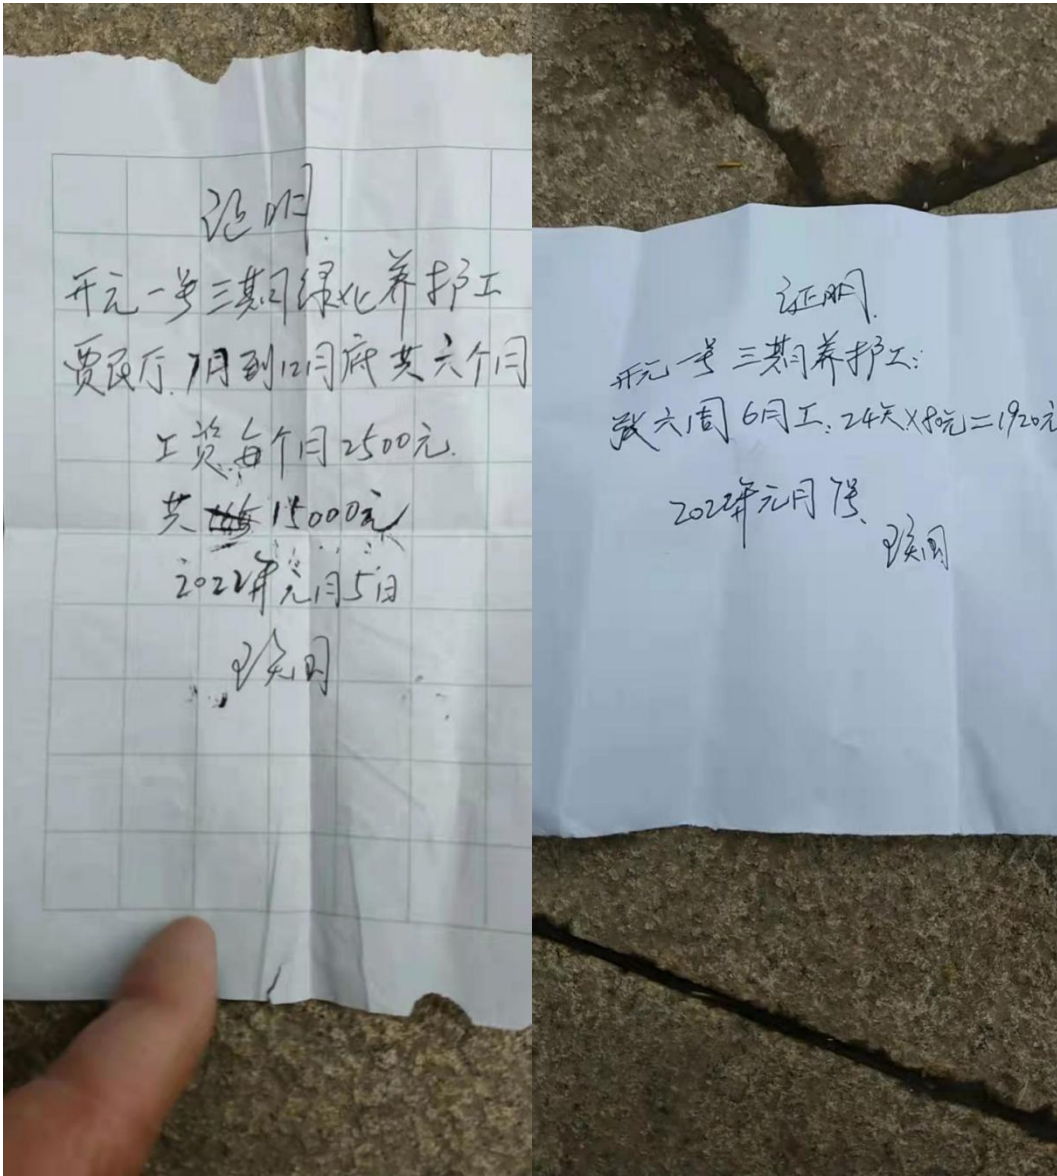 证明
开元一号三期绿化养护工
贾民厅.7月到12月底共六个月
工资每个月2500元.
共 15000元
2022年元月5日
证明.
开元一号三期养护工:
六周6月工:24天×80元=1920元
2022年元月7号.